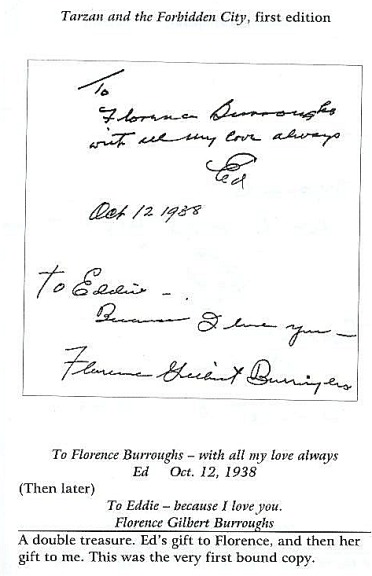 Tarzan and the Forbidden City, first edition
To
Florence Burroughs
with all my love always
Ed
Oct 12 1938
To Eddie –
Because I love you –
Florence Gilbert Burroughs
To Florence Burroughs – with all my love always
Ed Oct. 12, 1938
(Then later)
To Eddie – because I love you.
Florence Gilbert Burroughs
A double treasure. Ed's gift to Florence, and then her
gift to me. This was the very first bound copy.